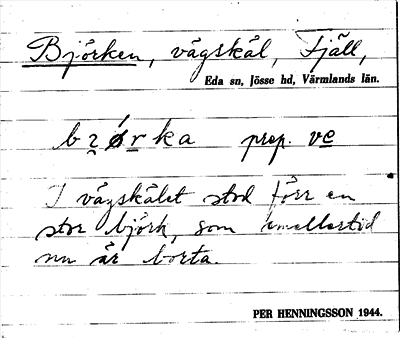 Björken, vägskäl, Fjäll,
Eda sn, Jösse hd, Värmlands län.
bzø̨rka prep. ve
I vägskälet stod förr en
stor björk, som emellertid
nu är borta.
PER HENNINGSSON 1944.